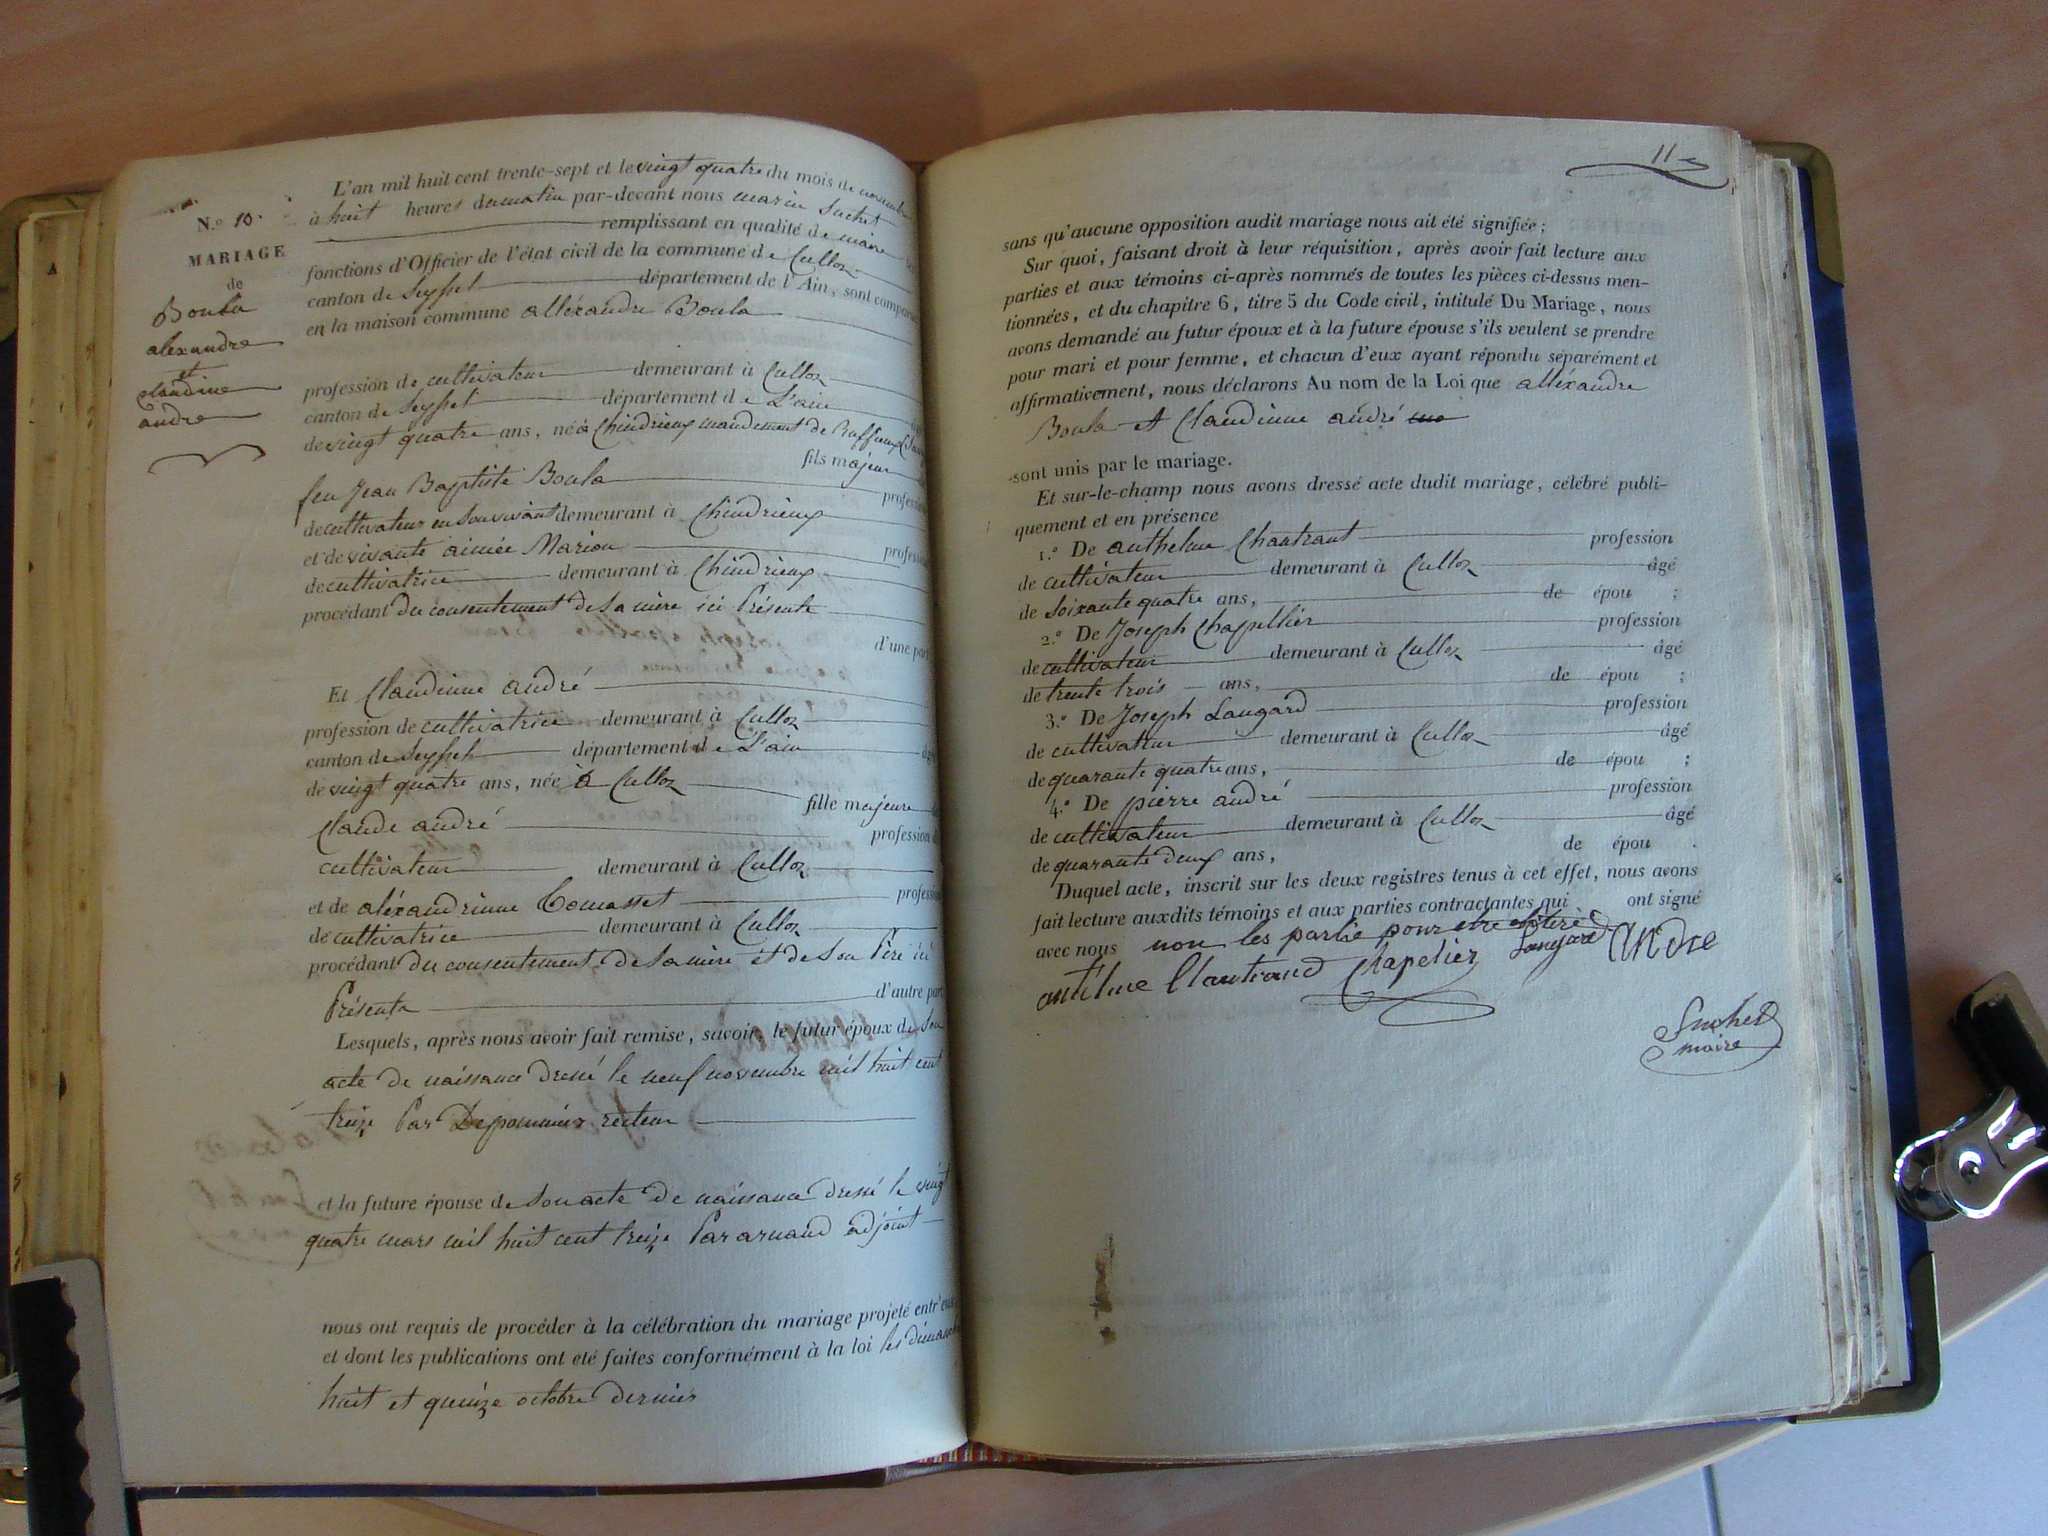 N.o 10.
MARIAGE
de
Boula
alexandre
et
claudine
andre
L'an mil huit cent trente-sept et le vingt quatre du mois de novembre
à huit heures du matin par-devant nous marin Suchet
remplissant en qualité de maire
fonctions d'Officier de l'état civil de la commune de Culloz
canton de Seyssel département de l'Ain, sont comparus
en la maison commune alléxandre Boula
profession de cultivateur demeurant à Culloz
canton de Seyssel département de L'ain
de vingt quatre ans, né à Chindrieux mandement de Ruffieux
fils majeur
feu Jean Baptiste Boula
profession
de cultivateur en son vivant demeurant à Chindrieux
et de vivante aimée Marion profession
de cultivatrice demeurant à Chindrieux
procédant du consentement de Sa mère ici Présente
d'une part
Et Claudinne andré
profession de cultivatrice demeurant à Culloz
canton de Seyssel département de L'ain
de vingt quatre ans, née à Culloz
fille majeure
Claude andré
profession de
cultivateur demeurant à Culloz
et de aléxandrinne Comasset profession
de cultivatrice demeurant à Culloz
procédant du consentement de Sa mère et de Son Père ici
Présents d'autre part
Lesquels, après nous avoir fait remise, savoir, le futur époux de Son
acte de naissance dressé le neuf novembre mil huit cent
treize Par Depommier recteur
et la future épouse de Son acte de naissance dressé le vingt
quatre mars mil huit cent treize Par arnaud adjoint
nous ont requis de procéder à la célébration du mariage projeté entr'eux
et dont les publications ont eté faites conformément à la loi les dimanche
huit et quinze octobre dernier
11
sans qu'aucune opposition audit mariage nous ait été signifiée;
Sur quoi, faisant droit à leur réquisition, après avoir fait lecture aux
parties et aux témoins ci-après nommés de toutes les pièces ci-dessus men-
tionnées, et du chapitre 6, titre 5 du Code civil, intitulé Du Mariage, nous
avons demandé au futur époux et à la future épouse s'ils veulent se prendre
pour mari et pour femme, et chacun d'eux ayant répondu séparément et
affirmativement, nous déclarons Au nom de la Loi que alléxandre
Boula et Claudinne andré
sont unis par le mariage.
Et sur-le-champ nous avons dressé acte dudit mariage, célébré publi-
quement et en présence
1.o De anthelme Chantrant profession
de cultivateur demeurant à Culloz âgé
de Soixante quatre ans, de épou ;
2.o De Joseph Chapellier profession
de cultivateur demeurant à Culloz âgé
de trente trois ans, de épou ;
3.o De Joseph Laugard profession
de cultivateur demeurant à Culloz âgé
de quarante quatre ans, de épou ;
4.o De pierre andré profession
de cultivateur demeurant à Culloz âgé
de quarante deux ans, de épou .
Duquel acte, inscrit sur les deux registres tenus à cet effet, nous avons
fait lecture auxdits témoins et aux parties contractantes qui ont signé
avec nous non les partie pour etre
Chapelier Laugard ANDRE
Suchet
maire